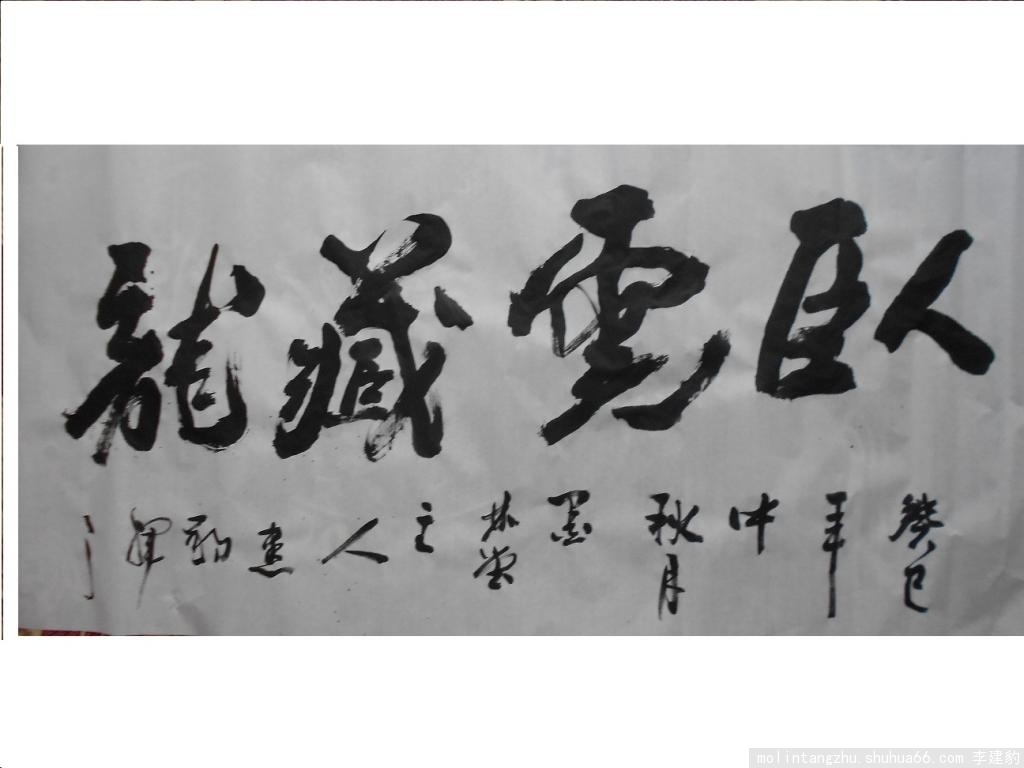 臥雲藏龍
癸巳年中秋月墨林堂主人建豹
molintangzhu.shuhua66.com 李建豹